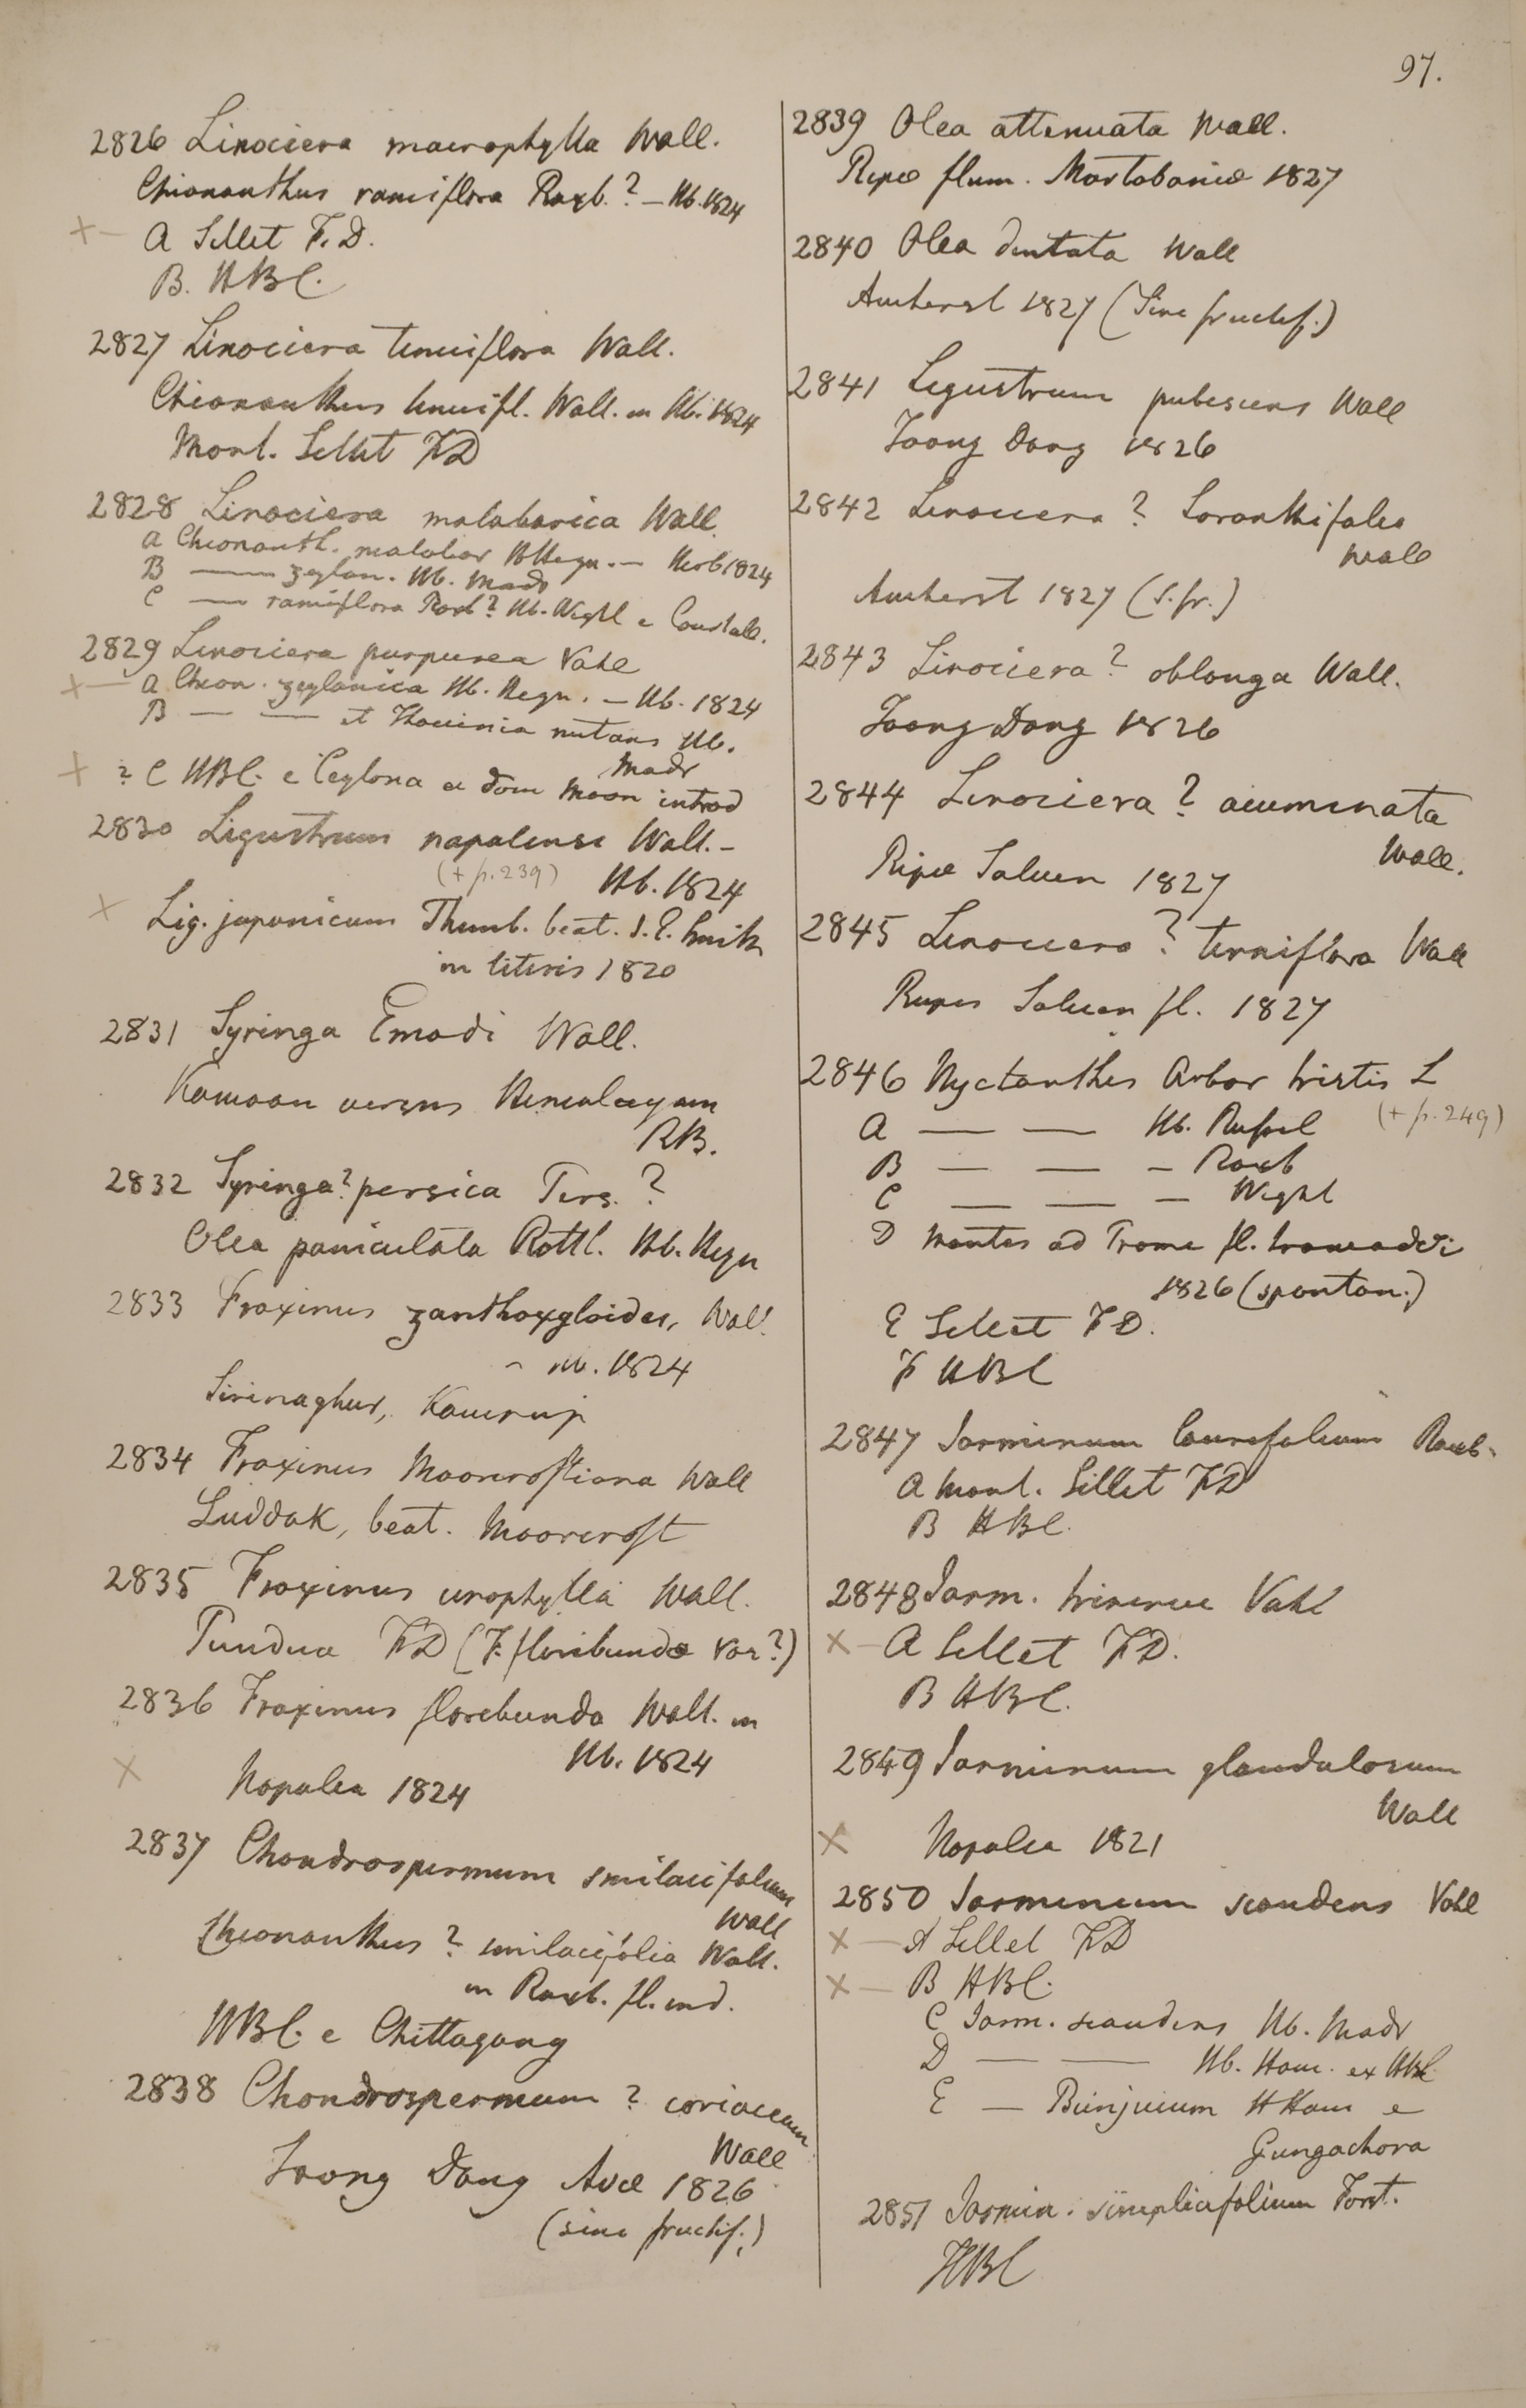 97.
2826 Linociera macrophylla Wall.
Chionanthus ramiflora Roxb.? — Hb. 1824
×— A Sillet F. D.
B. HBC.
2827 Linociera tenuiflora Wall.
Chionanthus tenuifl. Wall. in Hb. 1824
Mont. Sillet FD
2828 Linociera malabarica Wall.
a Chionanth. malabar HHeyn. — Herb 1824
B —— zeylan. Hb. Madr
C —— ramiflora Roxb? Hb. Wight e Courtall.
2829 Linociera purpurea Vahl
×— a Chion. zeylanica Hb. Heyn. — Hb. 1824
B — — et Thouinia nutans Hb.
Madr
× ? C HBC. e Ceylona a dom Moon introd
2830 Ligustrum napalense Wall. –
(+ p. 239) Hb. 1824
× Lig. japonicum Thunb. beat. J. E. Smith
in literis 1820
2831 Syringa Emodi Wall.
Kamoon versus Himalayam
RB.
2832 Syringa? persica Pers. ?
Olea paniculata Rottl. Hb. Heyn
2833 Fraxinus zanthoxyloides, Wall.
– Hb. 1824
Sirinaghur, Kamrup
2834 Fraxinus Moorcroftiana Wall
Luddak, beat. Moorcroft
2835 Fraxinus urophylla Wall.
Pundua FD (F. floribunda var?)
2836 Fraxinus floribunda Wall. in
Hb. 1824
× Napalia 1824
2837 Chondrospermum smilacifolium
Wall
Chionanthus ? smilacifolia Wall.
in Roxb. fl. ind.
HBC. e Chittagong
2838 Chondrospermum ? coriaceum
Wall
Toong Dong Avæ 1826
(sine fructif.)
2839 Olea attenuata Wall.
Ripæ flum. Martabaniæ 1827
2840 Olea dentata Wall
Amherst 1827 (Sine fructif.)
2841 Ligustrum pubescens Wall
Toong Dong 1826
2842 Linociera ? Loranthifolia
Wall
Amherst 1827 (s. fr.)
2843 Linociera ? oblonga Wall.
Toong Dong 1826
2844 Linociera ? acuminata
Wall.
Ripæ Saluen 1827
2845 Linociera ? terniflora Wall
Rupes Saluen fl. 1827
2846 Nyctanthes Arbor tristis L
(+ p. 249)
A — — Hb. Russel
B — — – Roxb
C — — — Wight
D Montes ad Prome fl. Irawaddi
1826 (spontan.)
E Sillet FD.
F HBC
2847 Jasminum laurifolium Roxb.
A Mont. Sillet FD
B HBC.
2848 Jasm. trinerve Vahl
×— A Sillet FD.
B HBC.
2849 Jasminum glandulosum
Wall
× Napalia 1821
2850 Jasminum scandens Vahl
×— A Sillet FD
×— B HBC.
C Jasm. scandens Hb. Madr
D — — Hb. Ham. ex HBC.
E — Bunjuium HHam e
Gungachora
2851 Jasmin. simplicifolium Forst.
HBC